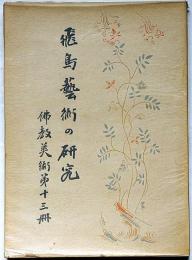 飛鳥藝術の研究
佛教美術第十三冊